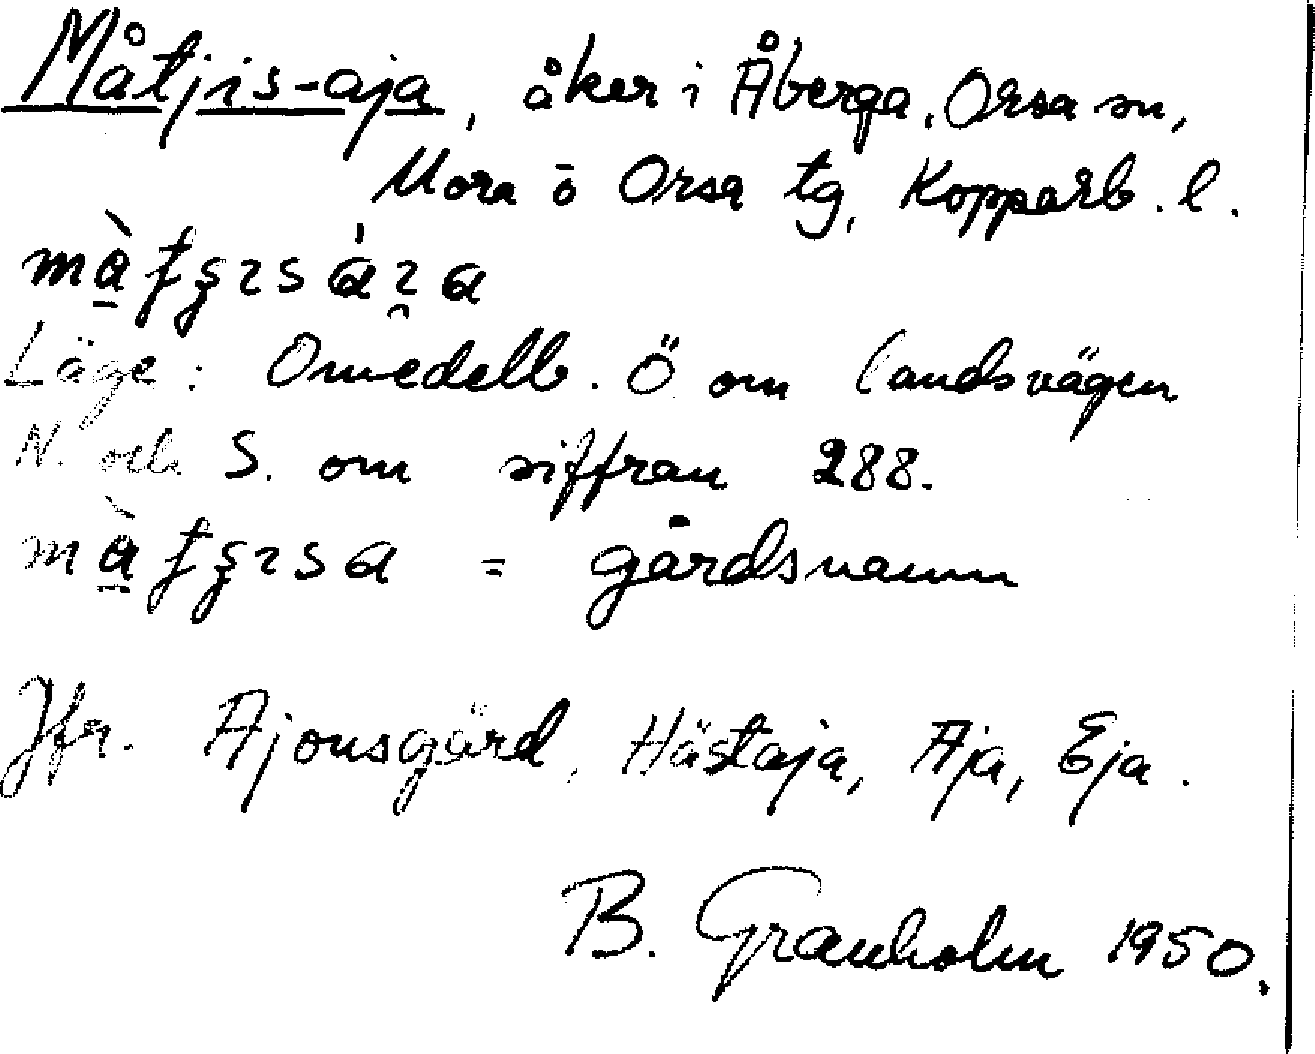 Måtjis-aja, åker i Åberga, Orsa sn,
Mora ö Orsa tg, Kopparb. l.
Läge: Omedelb. Ö om landsvägen
N. och S. om siffran 288.
= gårdsnamn
Jfr. Ajonsgärd, Hästaja, Aja, Eja.
B. Granholm 1950.